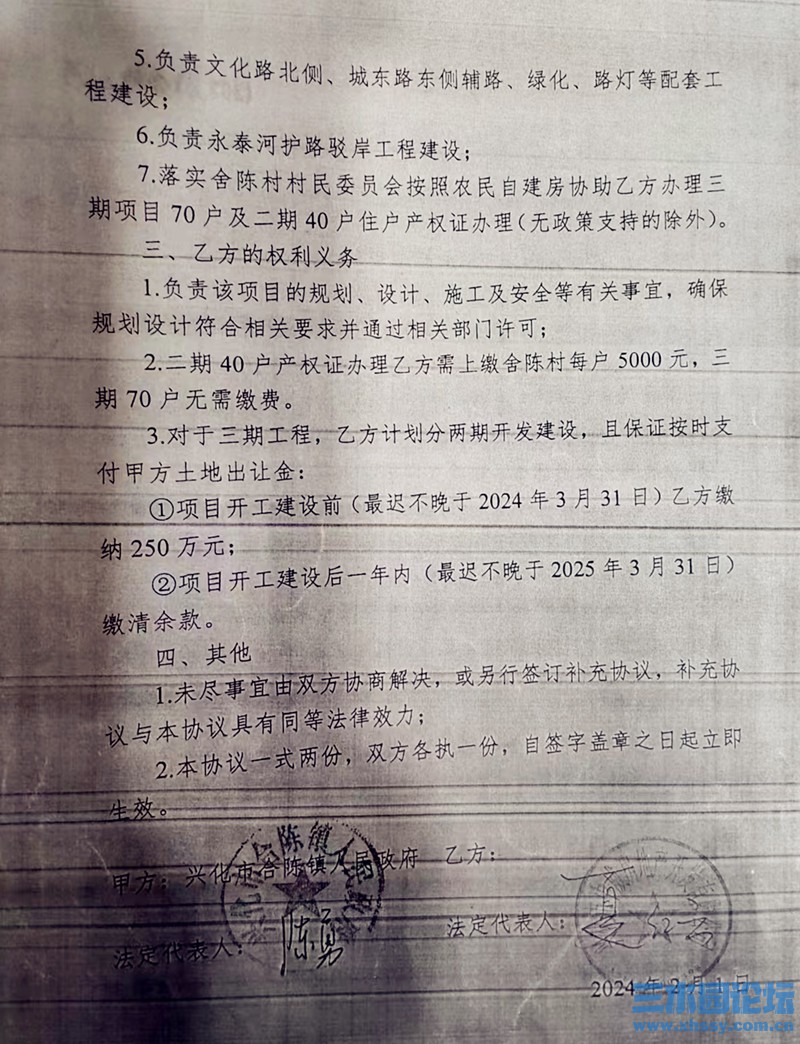 5.负责文化路北侧、城东路东侧辅路、绿化、路灯等配套工
程建设；
6.负责永泰河护路驳岸工程建设；
7.落实舍陈村村民委员会按照农民自建房协助乙方办理三
期项目70户及二期40户住户产权证办理（无政策支持的除外）。
三、乙方的权利义务
1.负责该项目的规划、设计、施工及安全等有关事宜，确保
规划设计符合相关要求并通过相关部门许可；
2.二期40户产权证办理乙方需上缴舍陈村每户5000元，三
期70户无需缴费。
3.对于三期工程，乙方计划分两期开发建设，且保证按时支
付甲方土地出让金：
①项目开工建设前（最迟不晚于2024年3月31日）乙方缴
纳250万元；
②项目开工建设后一年内（最迟不晚于2025年3月31日）
缴清余款。
四、其他
1.未尽事宜由双方协商解决，或另行签订补充协议，补充协
议与本协议具有同等法律效力；
2.本协议一式两份，双方各执一份，自签字盖章之日起立即
生效。
甲方：兴化市合陈镇人民政府 乙方：
法定代表人：陈勇 法定代表人：
2024年2月1日
三水园论坛